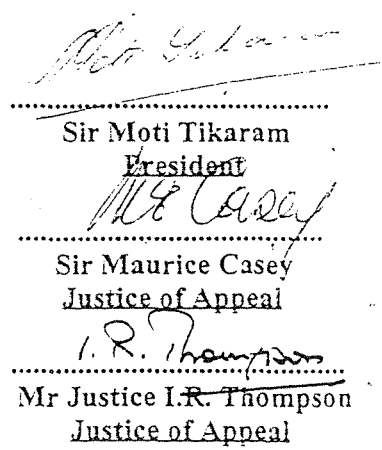 Moti Tikaram
..............................
Sir Moti Tikaram
President
ME Casey
..............................
Sir Maurice Casey
Justice of Appeal
I. R. Thompson
..............................
Mr Justice I.R. Thompson
Justice of Appeal